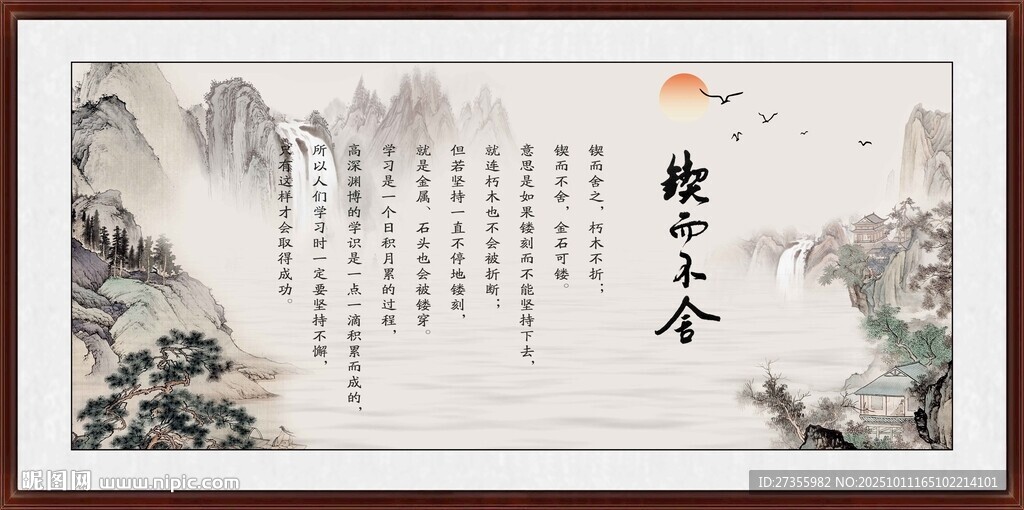 锲而不舍
锲而舍之，朽木不折；
锲而不舍，金石可镂。
意思是如果镂刻而不能坚持下去，
就连朽木也不会被折断；
但若坚持一直不停地镂刻，
就是金属、石头也会被镂穿。
学习是一个日积月累的过程，
高深渊博的学识是一点一滴积累而成的，
所以人们学习时一定要坚持不懈，
只有这样才会取得成功。
昵图网 www.nipic.com
ID:27355982 NO:20251011165102214101